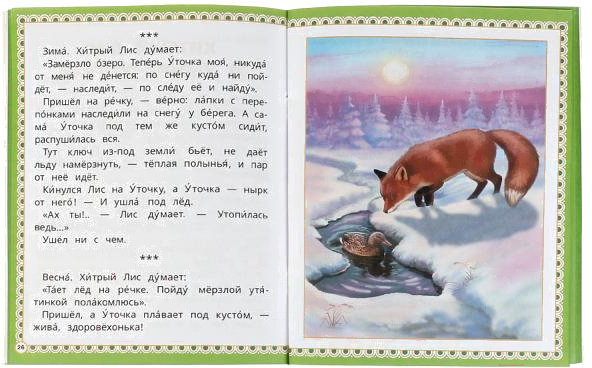 ***
Зима́. Хи́трый Лис ду́мает:
«Замёрзло о́зеро. Тепе́рь У́точка моя́, никуда́
от меня́ не де́нется: по сне́гу куда́ ни пой-
дёт, — наследи́т, — по сле́ду её и найду́».
Пришёл на ре́чку, — ве́рно: ла́пки с пере-
по́нками наследи́ли на снегу́ у бе́рега. А са-
ма́ У́точка под тем же кусто́м сиди́т,
распуши́лась вся.
Тут ключ из-под земли́ бьёт, не даёт
льду намёрзнуть, — тёплая полынья́, и пар
от неё идёт.
Ки́нулся Лис на У́точку, а У́точка — нырк
от него́! — И ушла́ под лёд.
«Ах ты!.. — Лис ду́мает. — Утопи́лась
ведь...»
Ушёл ни с чем.
***
Весна́. Хи́трый Лис ду́мает:
«Та́ет лёд на ре́чке. Пойду́ мёрзлой утя́-
тинкой пола́комлюсь».
Пришёл, а У́точка пла́вает под кусто́м, —
жива́, здоровёхонька!
26